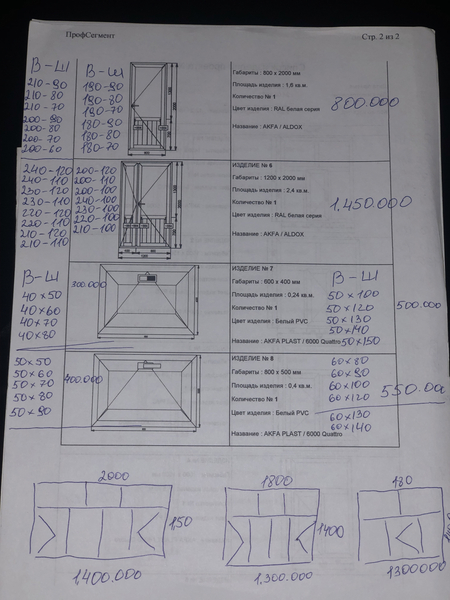 ПрофСегмент
Стр. 2 из 2
В-Ш
210-90
210-80
210-70
200-90
200-80
200-70
200-60
В-Ш
190-90
190-80
190-70
180-90
180-80
180-70
Габариты : 800 x 2000 мм
Площадь изделия : 1,6 кв.м.
Количество № 1
Цвет изделия : RAL белая серия
Название : AKFA / ALDOX
800.000
240-120
240-110
230-120
230-110
220-120
220-110
210-120
210-110
200-120
200-110
200-100
240-100
230-100
220-100
210-100
ИЗДЕЛИЕ № 6
Габариты : 1200 x 2000 мм
Площадь изделия : 2,4 кв.м.
Количество № 1
Цвет изделия : RAL белая серия
Название : AKFA / ALDOX
1,450.000
В-Ш
40x50
40x60
40x70
40x80
300.000
ИЗДЕЛИЕ № 7
Габариты : 600 x 400 мм
Площадь изделия : 0,24 кв.м.
Количество № 1
Цвет изделия : Белый PVC
Название : AKFA PLAST / 6000 Quattro
В-Ш
50x100
50x120
50x130
50x140
50x150
500.000
50x50
50x60
50x70
50x80
50x90
400.000
ИЗДЕЛИЕ № 8
Габариты : 800 x 500 мм
Площадь изделия : 0,4 кв.м.
Количество № 1
Цвет изделия : Белый PVC
Название : AKFA PLAST / 6000 Quattro
60x80
60x90
60x100
60x120
60x130
60x140
550.00
2000
1,50
1,400.000
1800
1400
1,300.000
180
1300000